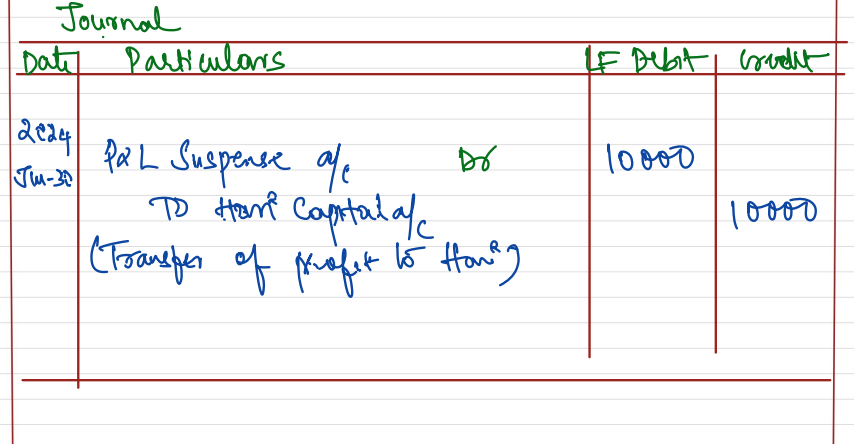 Journal
Date Particulars LF Debit Credit
2024
Jun-30 P&L Suspense a/c Dr 10000
To Hari Capital a/c 10000
(Transfer of profit to Hari)